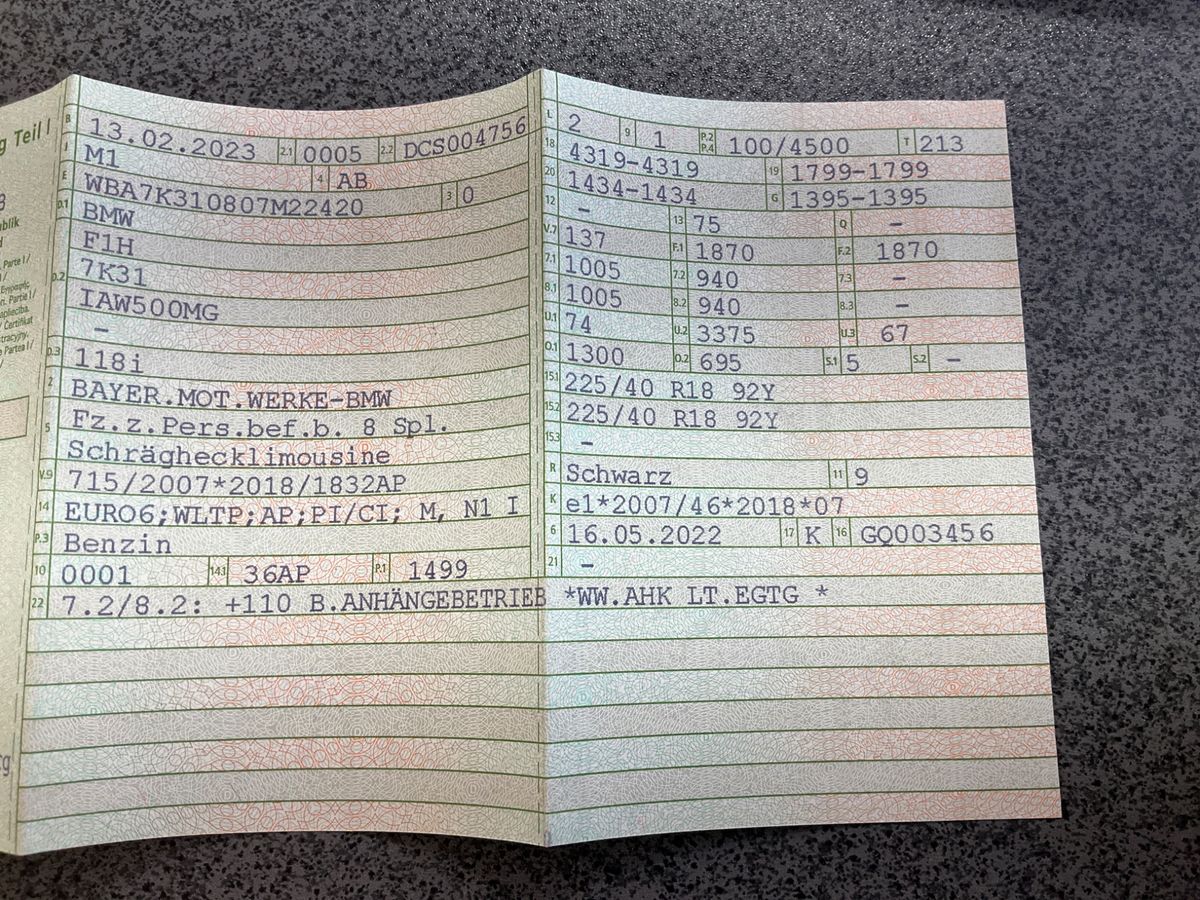 g Teil I
B 13.02.2023 2.1 0005 2.2 DCS004756
J M1 4 AB
E WBA7K310807M22420 3 0
D.1 BMW
F1H
D.2 7K31
IAW500MG
–
D.3 118i
2 BAYER.MOT.WERKE-BMW
5 Fz.z.Pers.bef.b. 8 Spl.
Schräghecklimousine
V.9 715/2007*2018/1832AP
14 EURO6;WLTP;AP;PI/CI; M, N1 I
P.3 Benzin
10 0001 14.1 36AP P.1 1499
22 7.2/8.2: +110 B.ANHÄNGEBETRIEB *WW.AHK LT.EGTG *
L 2 9 1 P.2 P.4 100/4500 T 213
18 4319-4319 19 1799-1799
20 1434-1434 G 1395-1395
12 – 13 75 Q –
V.7 137 F.1 1870 F.2 1870
7.1 1005 7.2 940 7.3 –
8.1 1005 8.2 940 8.3 –
U.1 74 U.2 3375 U.3 67
O.1 1300 O.2 695 S.1 5 S.2 –
15.1 225/40 R18 92Y
15.2 225/40 R18 92Y
15.3 –
R Schwarz 11 9
K e1*2007/46*2018*07
6 16.05.2022 17 K 16 GQ003456
21 –